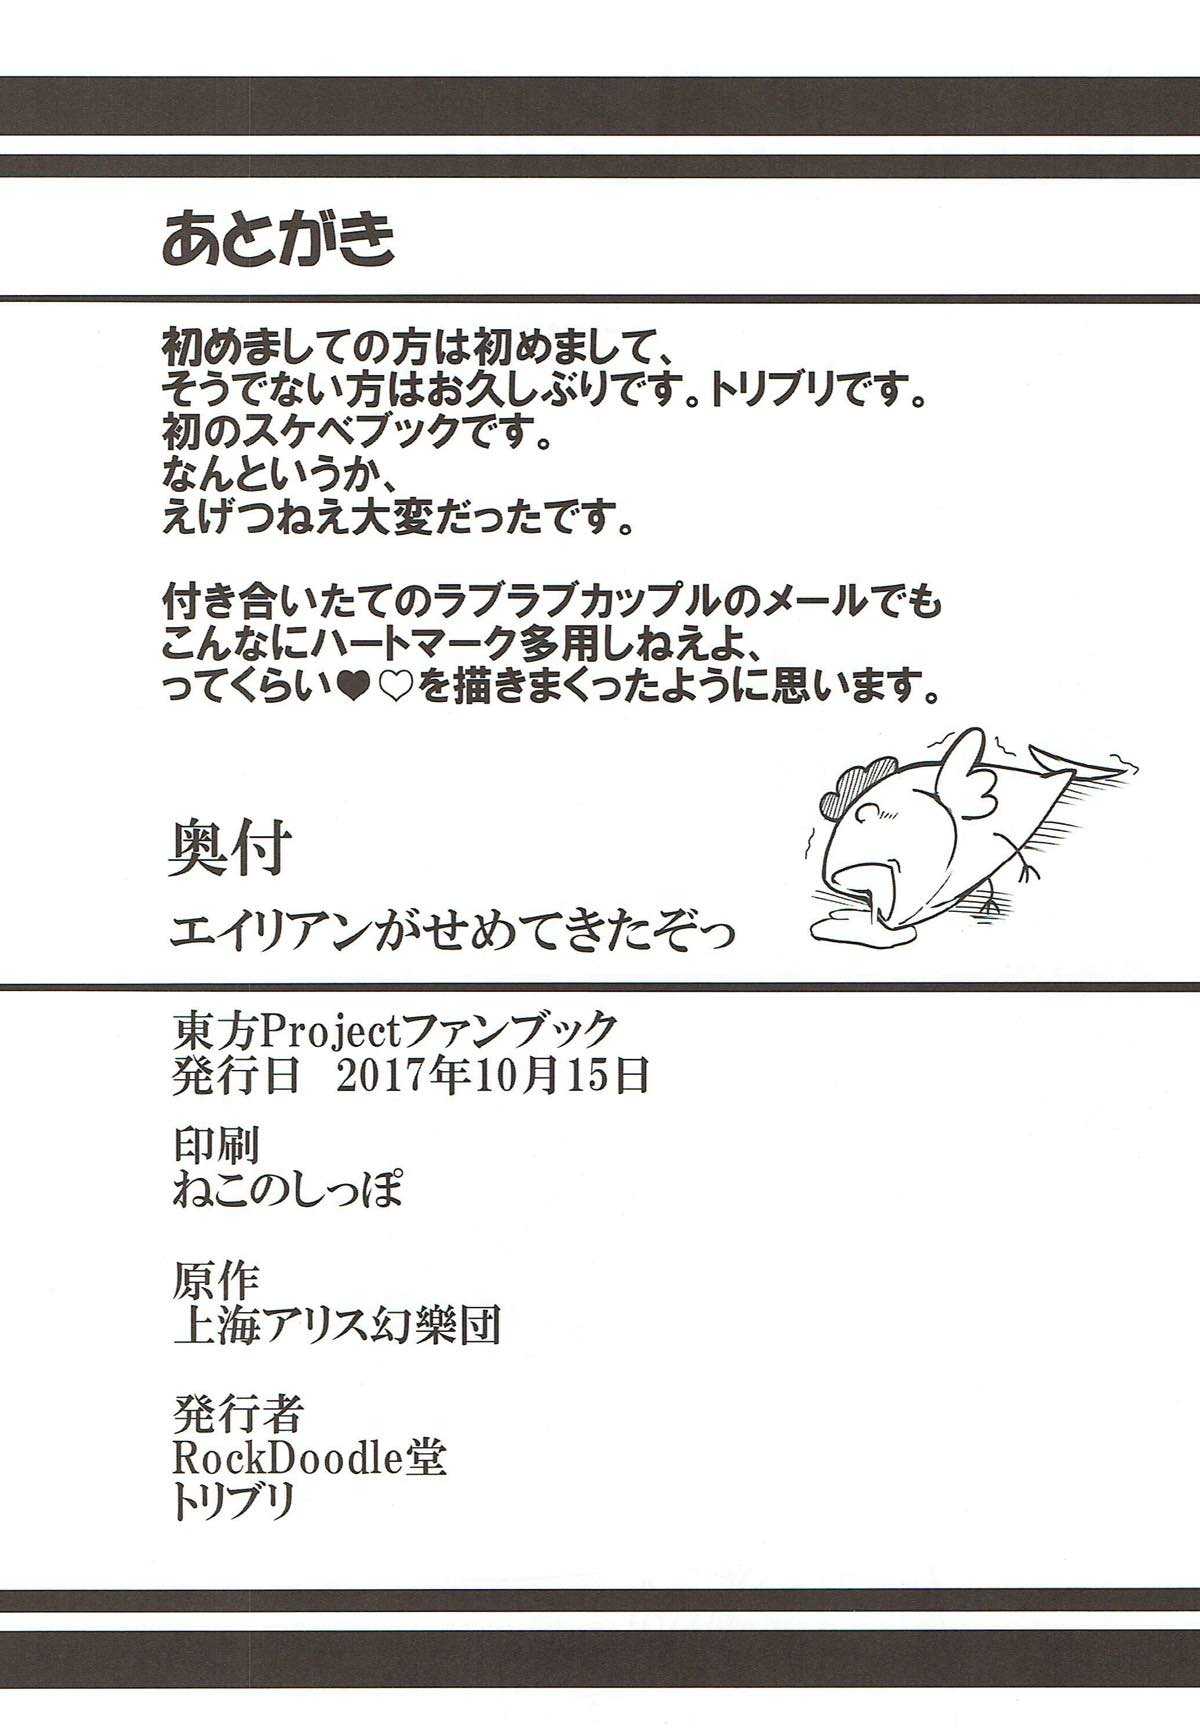 あとがき
初めましての方は初めまして、
そうでない方はお久しぶりです。トリブリです。
初のスケベブックです。
なんというか、
えげつねえ大変だったです。
付き合いたてのラブラブカップルのメールでも
こんなにハートマーク多用しねえよ、
ってくらい♥♡を描きまくったように思います。
奥付
エイリアンがせめてきたぞっ
東方Projectファンブック
発行日　2017年10月15日
印刷
ねこのしっぽ
原作
上海アリス幻樂団
発行者
RockDoodle堂
トリブリ